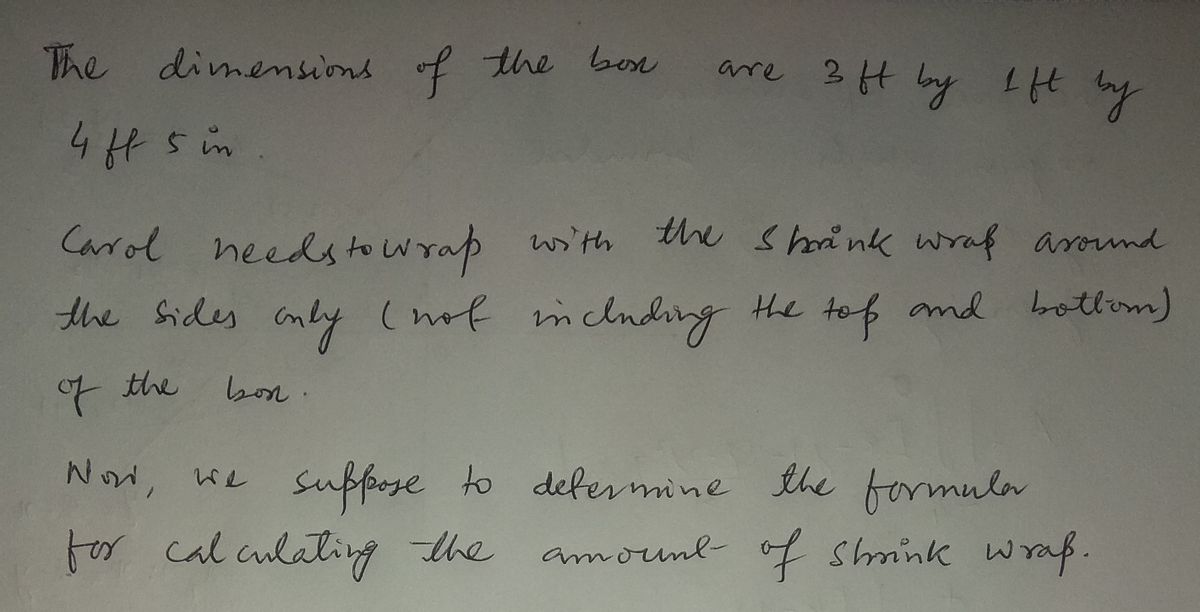 The dimensions of the box are 3 ft by 1 ft by
4 ft 5 in.
Carol needs to wrap with the shrink wrap around
the sides only (not including the top and bottom)
of the box.
Now, we suppose to determine the formula
for calculating the amount of shrink wrap.